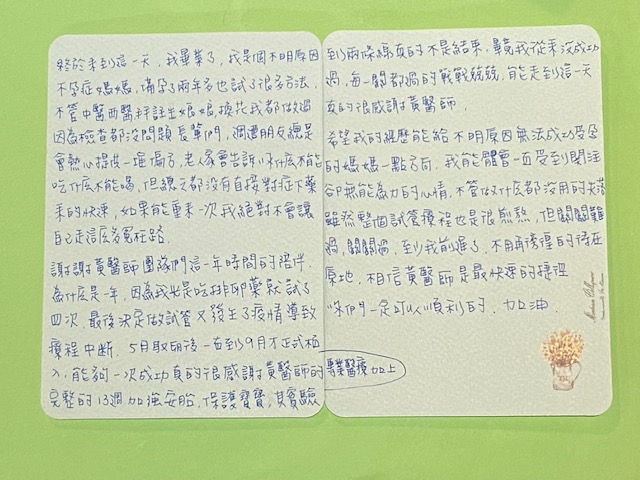 終於來到這一天，我畢業了，我是個不明原因
不孕症媽媽，備孕了兩年多也試了很多方法，
不管中醫西醫拜註生娘娘，換花我都做過
因為檢查都沒問題，長輩們，週遭朋友總是
會熱心提供一堆偏方，老人家會告訴妳什麼不能
吃什麼不能喝，但總之都沒有直接對症下藥
來的快速，如果能重來一次我絕對不會讓
自己走這麼多冤枉路．
謝謝黃醫師團隊們這一年時間的陪伴，
為什麼是一年，因為我光是吃排卵藥就試了
四次，最後決定做試管又發生了疫情導致
療程中斷．5月取卵後一直到9月才正式植
入，能夠一次成功真的很感謝黃醫師的專業醫療加上
完整的13週加強安胎，保護寶寶，其實驗
到兩條線真的不是結束，畢竟我從來沒成功
過，每一關都過的戰戰兢兢，能走到這一天
真的很感謝黃醫師．
希望我的經歷能給不明原因無法成功受孕
的媽媽一點方向，我能體會一直受到關注
卻無能為力的心情，不管做什麼都沒用的失落
雖然整個試管療程也是很煎熬，但關關難
過，關關過，至少我前進了，不用再徬徨的待在
原地，相信黃醫師是最快速的捷徑
妳們一定可以順利的．加油．